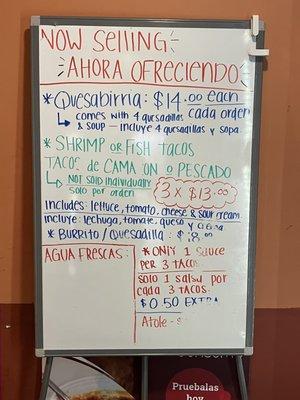 NOW SELLING
AHORA OFRECIENDO
* QUESABIRRIA: $14.00 each
comes with 4 quesadillas cada orden
& SOUP - incluye 4 quesadillas y sopa
* SHRIMP OR FISH TACOS
TACOS de CAMARON O PESCADO
NOT SOLD individually
solo por orden
3 X $13.00
includes: lettuce, tomato, cheese & sour cream
incluye: lechuga, tomate, queso y crema
* BURRITO / Quesadilla: $8
AGUA FRESCAS:
* ONLY 1 sauce
per 3 tacos
solo 1 salsa por
cada 3 tacos
$0.50 EXTRA
Atole -
Pruebalas
hoy